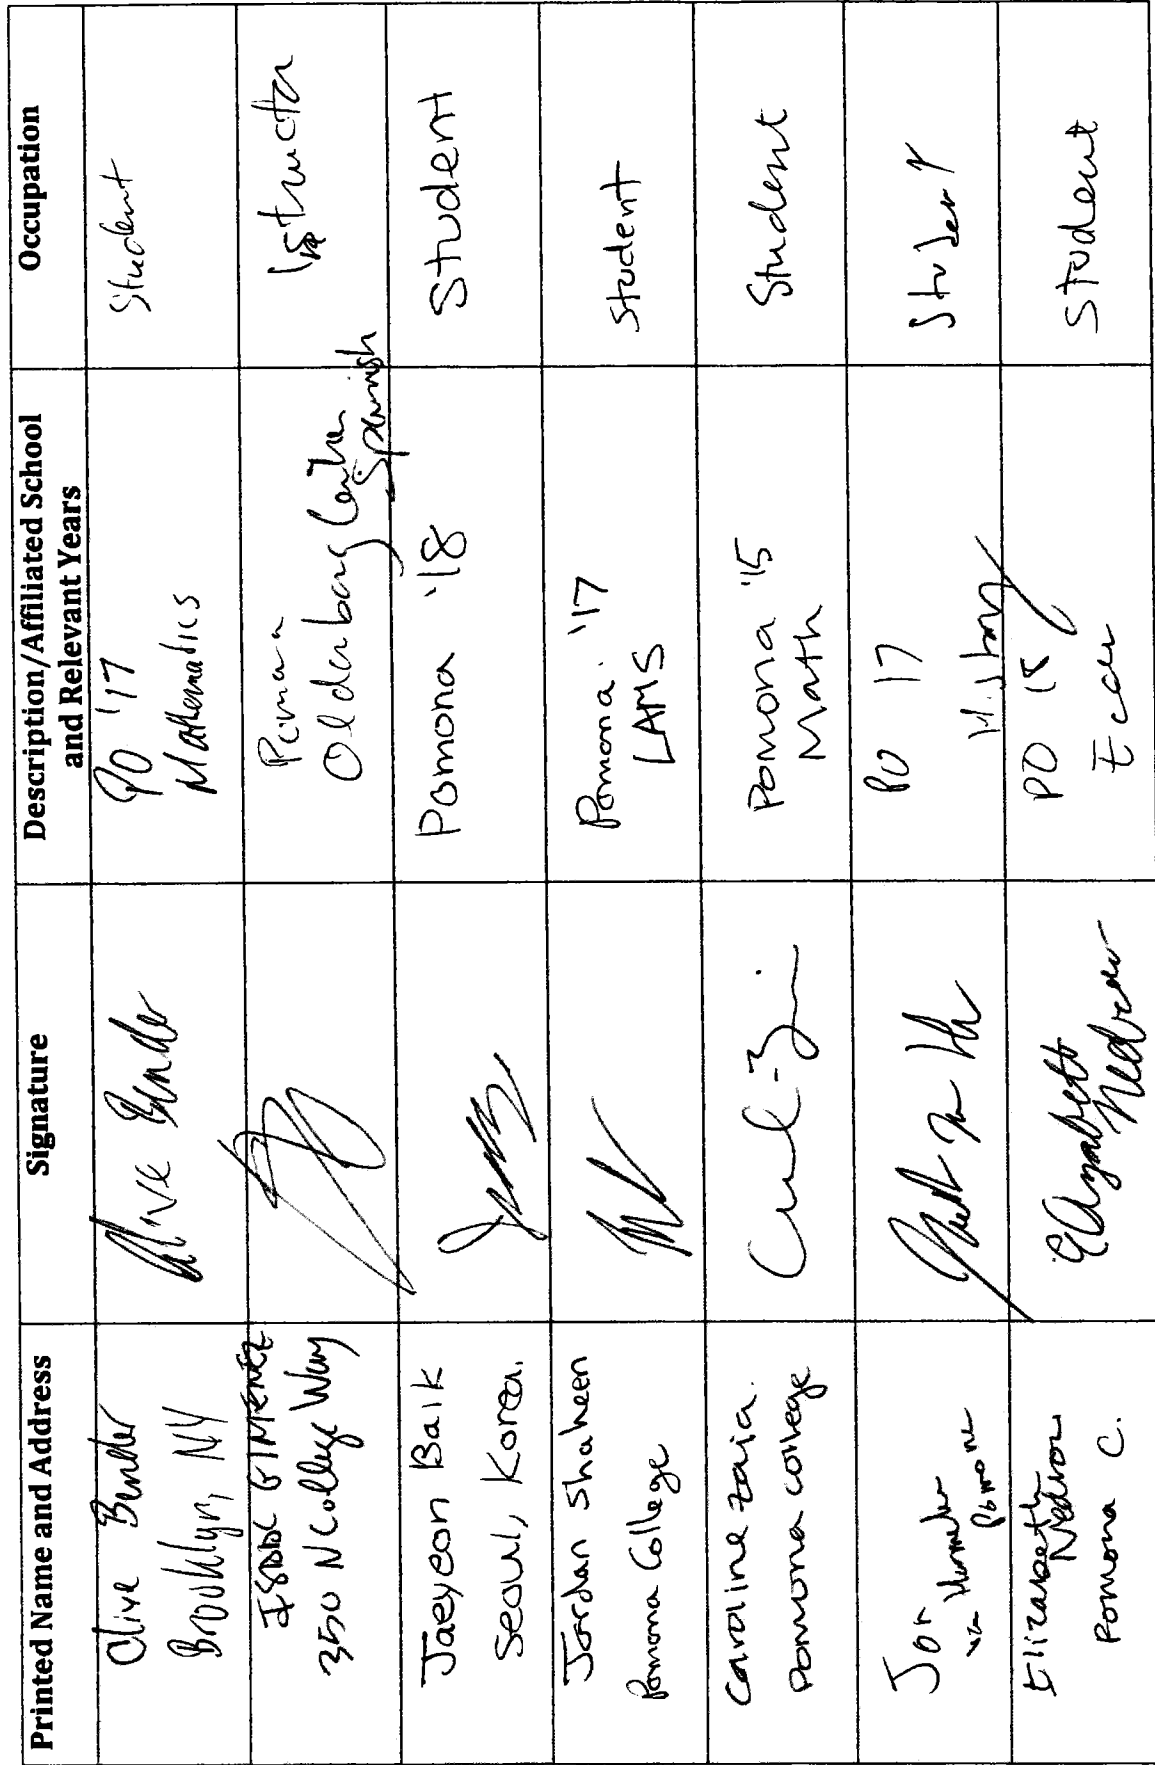 Printed Name and Address
Signature
Description/Affiliated School
and Relevant Years
Occupation
Clive Bender
Brooklyn, NY
Clive Bender
PO '17
Mathematics
Student
GIMENEZ
350 N College Way
Pomona
Oldenborg Center
Spanish
Jaeyeon Baik
Seoul, Korea.
Pomona '18
Student
Jordan Shaheen
Pomona College
Pomona '17
LAMS
Student
Caroline Zaia.
Pomona College
Pomona '15
Math
Student
Jon
Pomona
PO 17
History
Student
Elizabeth
Pomona C.
Elizabeth
PO 18
Econ
Student